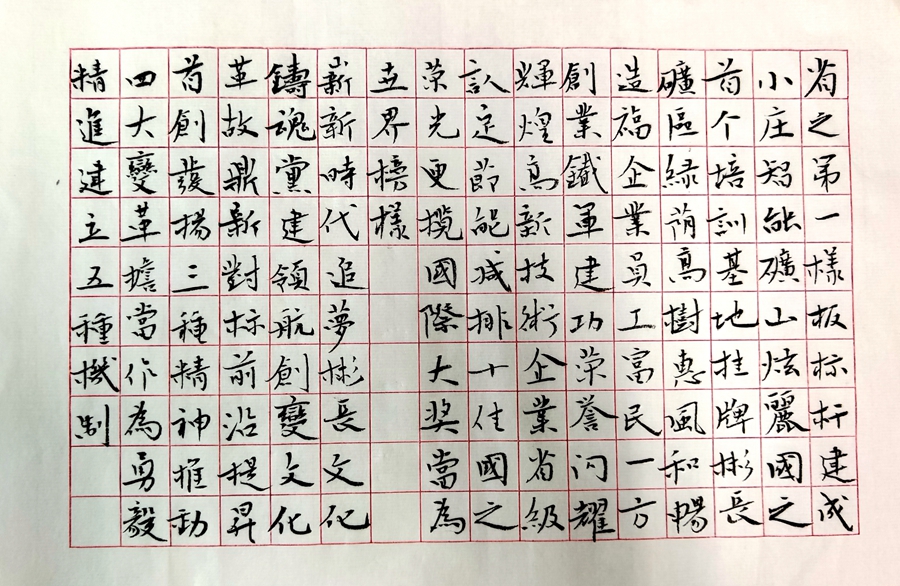 省之第一樣板标杆建成
小庄智能礦山炫麗國之
首个培訓基地挂牌彬長
礦區緑荫高樹惠風和暢
造福企業員工富民一方
創業鐵軍建功荣誉闪耀
輝煌高新技術企業省級
認定節能减排十佳國之
荣光更攬國際大奖當為
世界榜樣
嶄新時代追夢彬長文化
鑄魂黨建領航創變文化
革故鼎新對标前沿提昇
首創發揚三種精神推動
四大變革擔當作為勇毅
精進建立五種機制